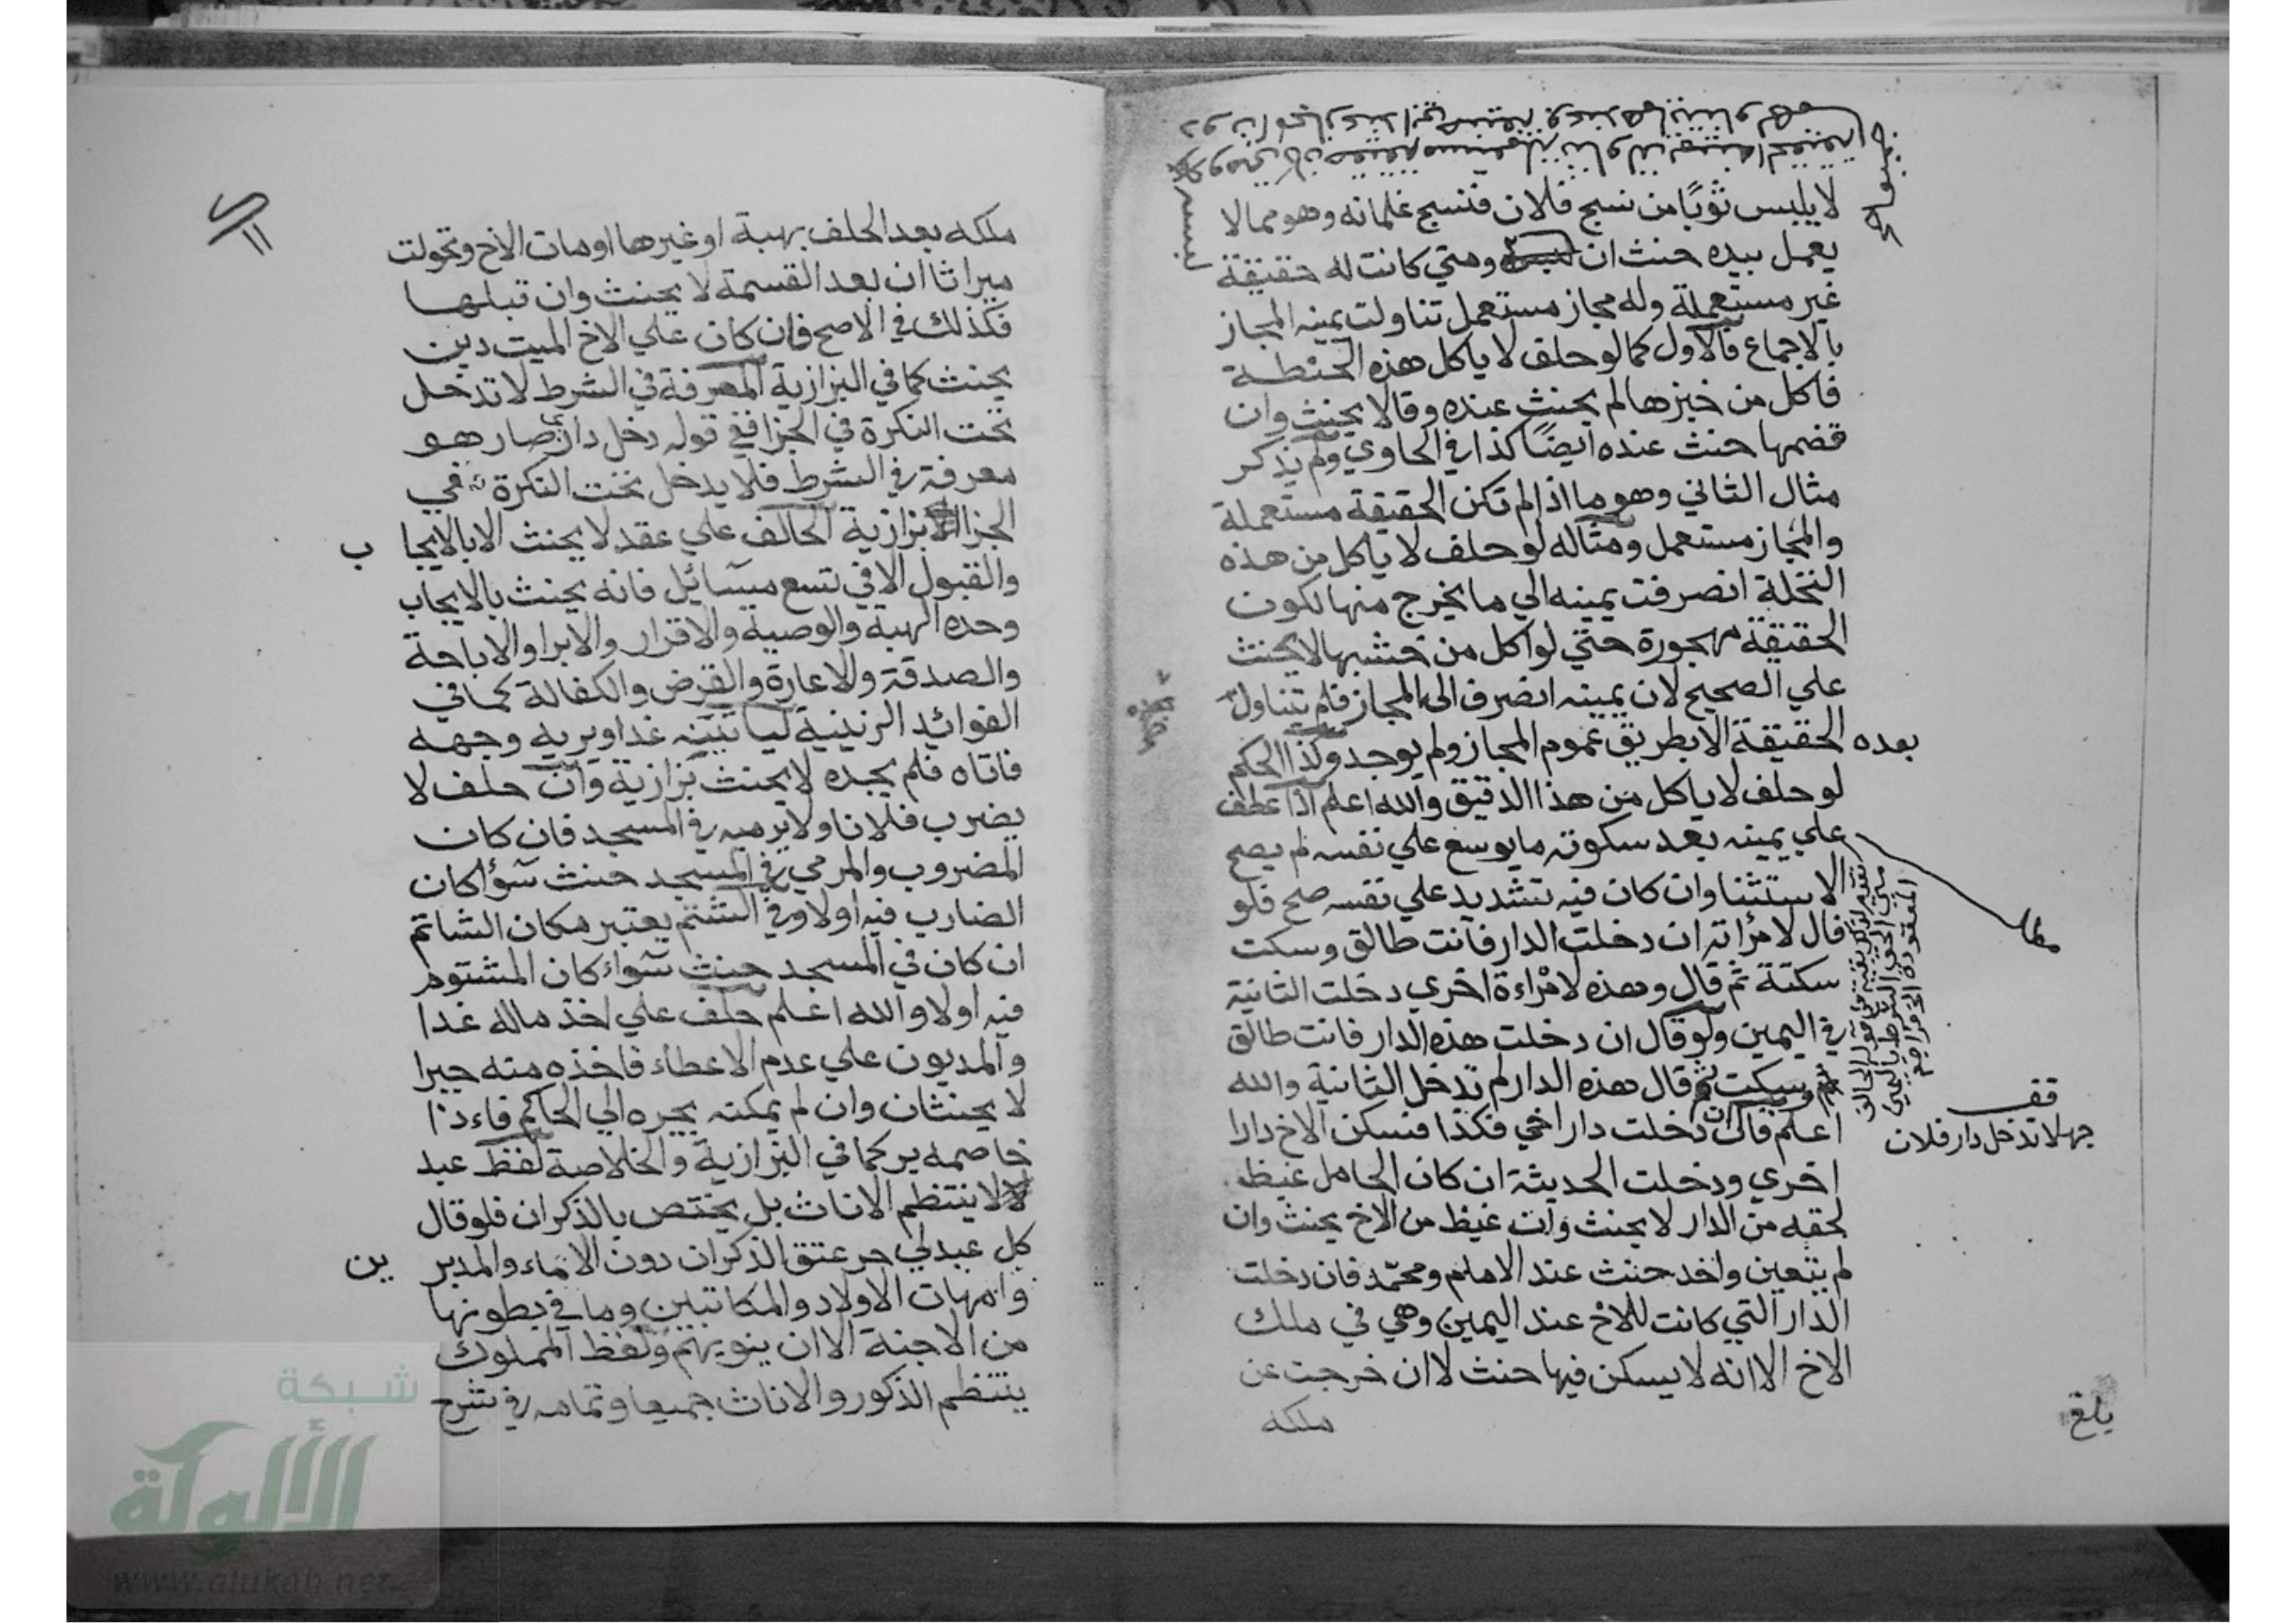 لا يلبس ثوبًا من نسج فلان فنسج غلمانه وهو مما لا
يعمل بيده حنث ان ومتي كانت له حقيقة
غير مستعملة وله مجاز مستعمل تناولت يمينه المجاز
بالاجماع فالاول كما لو حلف لا ياكل هذه الحنطة
فاكل من خبزها لم يحنث عنده وقالا يحنث وان
قضمها حنث عنده ايضًا كذا في الحاوي ولم يذكر
مثال الثاني وهو ما اذا لم تكن الحقيقة مستعملة
والمجاز مستعمل ومثاله لو حلف لا ياكل من هذه
النخلة انصرفت يمينه الي ما يخرج منها لكون
الحقيقة مهجورة حتي لو اكل من خشبها لا يحنث
علي الصحيح لان يمينه انصرف الى المجاز فلم تتناول
بعده الحقيقة الا بطريق عموم المجاز ولم يوجد وكذا الحكم
لو حلف لا ياكل من هذا الدقيق والله اعلم اذا عطف
علي يمينه بعد سكوته ما يوسع علي نفسه لم يصح
الاستثنا وان كان فيه تشديد علي نفسه صح فلو
قال لامرأته ان دخلت الدار فانت طالق وسكت
سكتة ثم قال وهذه لامراءة اخري دخلت الثانية
في اليمين ولو قال ان دخلت هذه الدار فانت طالق
وسكت ثم قال هذه الدار لم تدخل الثانية والله
اعلم قال ان دخلت دار اخي فكذا فسكن الاخ دارا
اخري ودخلت الحديثة ان كان الحامل غيظ
لحقه من الدار لا يحنث وان غيظ من الاخ يحنث وان
لم يتعين واحد حنث عند الامام ومحمد فان دخلت
الدار التي كانت للاخ عند اليمين وهي في ملك
الاخ الا انه لا يسكن فيها حنث لا ان خرجت عن
ملكه
قف
جهلا تدخل دار فلان
بلغ
ملكه بعد الحلف بهبة او غيرها او مات الاخ وتحولت
ميراثا ان بعد القسمة لا يحنث وان قبلها
فكذلك في الاصح فان كان علي الاخ الميت دين
يحنث كما في البزازية المعرفة في الشرط لا تدخل
تحت النكرة في الجزا ففي قوله دخل داري صار هو
معرفة في الشرط فلا يدخل تحت النكرة في
الجزا بزازية الحالف علي عقد لا يحنث الا بالايجاب
والقبول الا في تسع مسائل فانه يحنث بالايجاب
وحده الهبة والوصية والاقرار والابرا والاباحة
والصدقة والاعارة والقرض والكفالة كما في
الفوائد الزينية لياتينه غدا ويريه وجهه
فاتاه فلم يجده لا يحنث بزازية وان حلف لا
يضرب فلانا ولا يرميه في المسجد فان كان
المضروب والمرمي في المسجد حنث سوأ كان
الضارب فيه اولا وفي الشتم يعتبر مكان الشاتم
ان كان في المسجد حنث سواء كان المشتوم
فيه اولا والله اعلم حلف علي اخذ ماله غدا
والمديون علي عدم الاعطاء فاخذه منه جبرا
لا يحنثان وان لم يمكنه يجره الي الحاكم فاءذا
خاصمه بر كما في البزازية والخلاصة لفظ عبد
لا ينتظم الاناث بل يختص بالذكران فلو قال
كل عبد لي حر عتق الذكران دون الاماء والمدبرين
وامهات الاولاد والمكاتبين وما في بطونها
من الاجنة الا ان ينويهم ولفظ المملوك
ينتظم الذكور والاناث جميعا وتمامه في شرح
شبكة
الألوكة
www.alukah.net